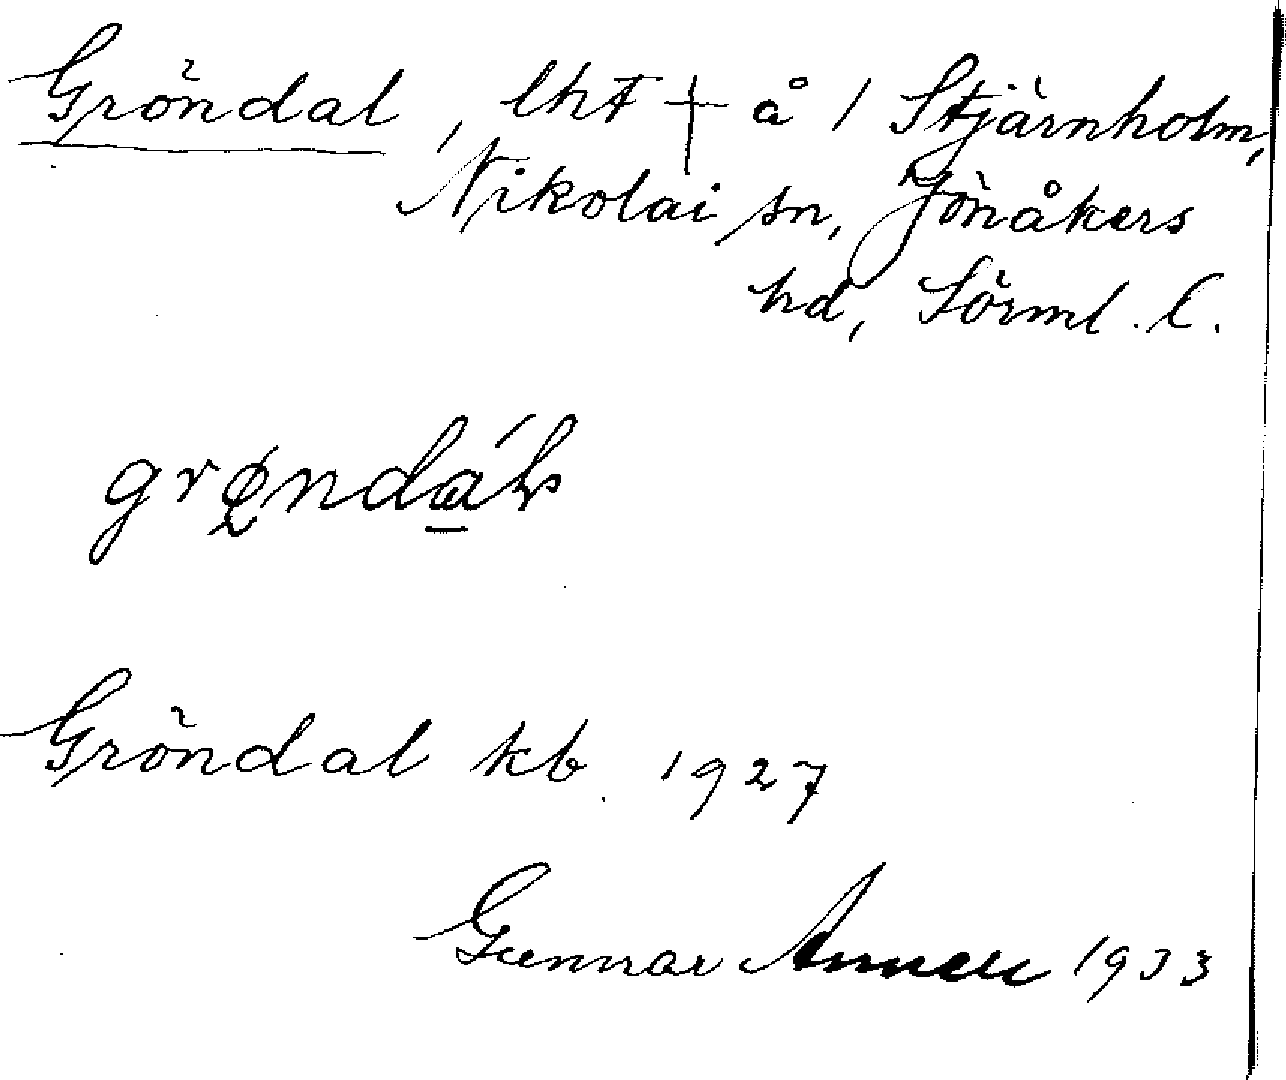 Gröndal, lht † å 1 Stjärnholm,
Nikolai sn, Jönåkers
hd, Sörml. l.
Gröndal kb. 1927
Gunnar 1933